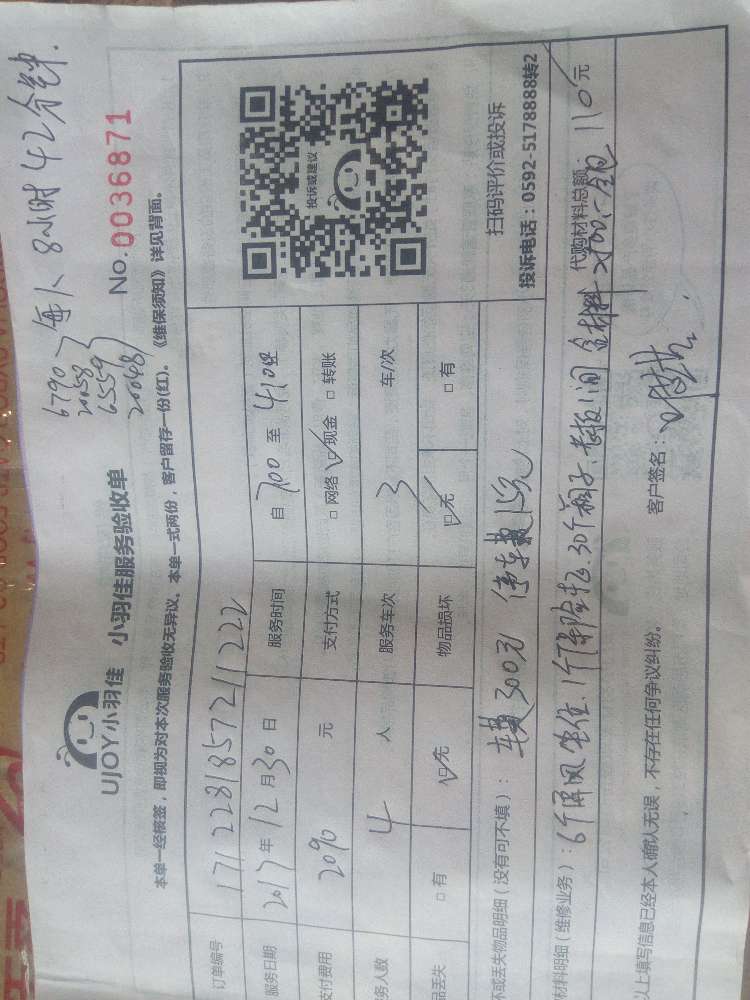 6790
20058
6559
20048
每人 8小时 42分钟.
UJOY小羽佳 小羽佳服务验收单 No. 0036871
本单一经核签，即视为对本次服务验收无异议。本单一式两份，客户留存一份(红)。《维保须知》详见背面。
订单编号 17122818572211222
服务日期 2017 年 12 月 30 日 服务时间 自 700 至
支付费用 2090 元 支付方式 □ 网络 ☑ 现金 □ 转账
务人数 4 人 服务车次 3 车/次
品丢失 □ 有 ☑ 无 物品损坏 ☑ 无 □ 有
投诉或建议
扫码评价或投诉
投诉电话：0592-5178888转2
坏或丢失物品明细（没有可不填）： 车费300元 停车费15元
材料明细（维修业务）：6个屏风坐位. 1个保险柜. 30个箱子. 1间 代购材料总额： 110 元
以上填写信息已经本人确认无误，不存在任何争议纠纷。 客户签名：